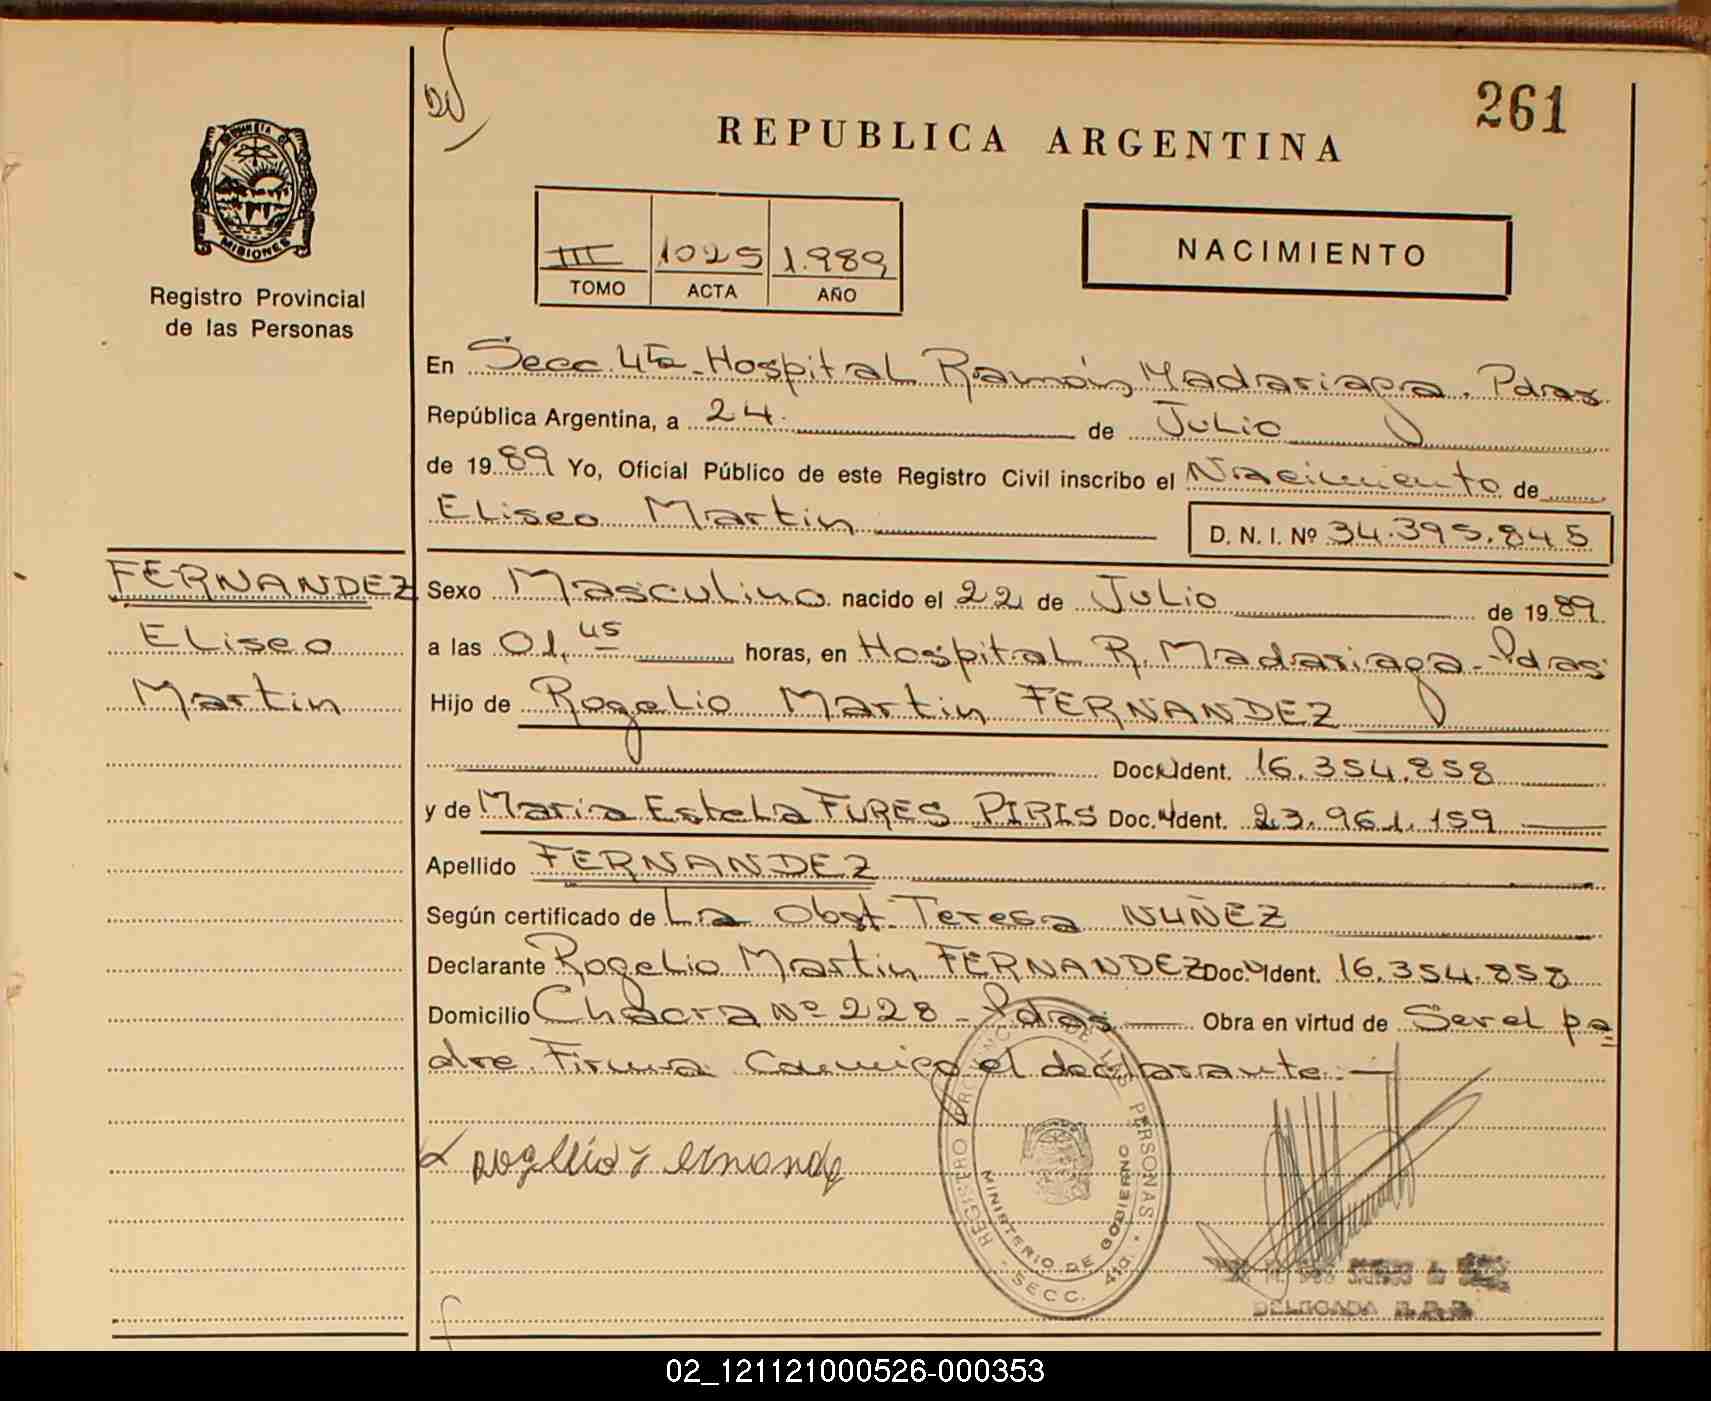 261
REPUBLICA ARGENTINA
PROVINCIA DE MISIONES
Registro Provincial
de las Personas
III 1025 1.989
TOMO ACTA AÑO
NACIMIENTO
En Secc. 4ta - Hospital Ramón Madariaga. Pdas
República Argentina, a 24. de Julio
de 1989 Yo, Oficial Público de este Registro Civil inscribo el Nacimiento de
Eliseo Martin D. N. I. Nº 34.395.845
FERNANDEZ
Eliseo
Martin
Sexo Masculino nacido el 22 de Julio de 1989
a las 01,45 horas, en Hospital R. Madariaga - Pdas
Hijo de Rogelio Martin FERNANDEZ
Doc. Ident. 16.354.858
y de Maria Estela FURES PIRIS Doc. Ident. 23.961.159
Apellido FERNANDEZ
Según certificado de La Obst. Teresa NUÑEZ
Declarante Rogelio Martin FERNANDEZ Doc. Ident. 16.354.858
Domicilio Chacra Nº 228 - Pdas Obra en virtud de Ser el pa
dre. Firma Conmigo el declarante. -
REGISTRO PROVINCIAL DE LAS PERSONAS
MINISTERIO DE GOBIERNO
SECC. 4ta.
DELEGADA R.P.P.
02_121121000526-000353